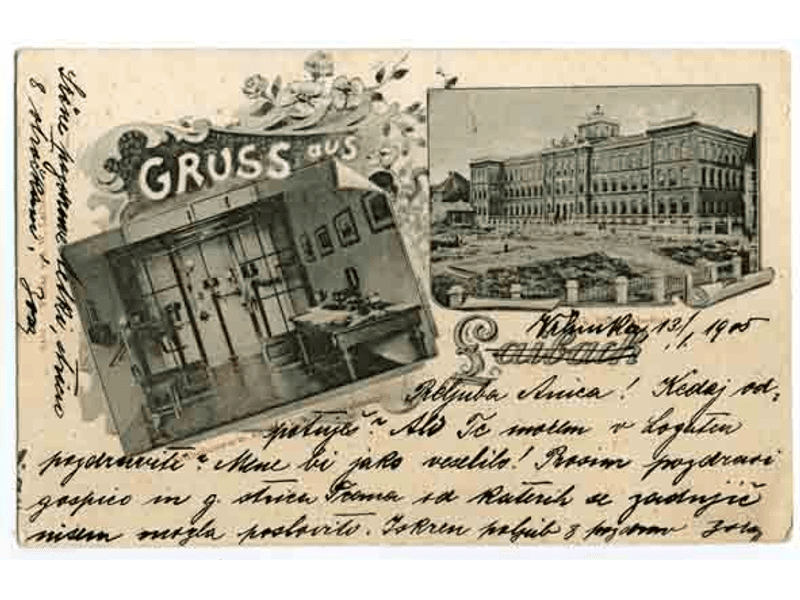 GRUSS aus
Laibach
Vrhnika, 13/1. 1905
Preljuba Anica! Kedaj od=
potuješ? Ali Te morem v Logatcu
pozdraviti? Mene bi jako veselilo! Prosim pozdravi
gospico in g. strica od katerih se zadnjič
nisem mogla posloviti. Iskren poljub & pozdrav